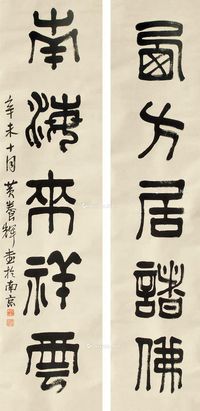 西方居諸佛
南海來祥雲
辛未十月黄養輝書於南京